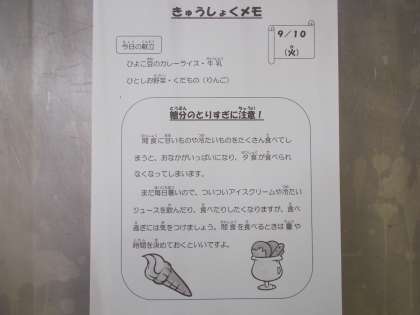 きゅうしょくメモ
9/10
(火)
今日の献立
ひよこ豆のカレーライス・牛乳
ひとしお野菜・くだもの(りんご)
糖分のとりすぎに注意!
間食に甘いものや冷たいものをたくさん食べてし
まうと、おなかがいっぱいになり、夕食が食べられ
なくなってしまいます。
まだ毎日暑いので、ついついアイスクリームや冷たい
ジュースを飲んだり、食べたりしたくなりますが、食べ
過ぎには気をつけましょう。間食を食べるときは量や
時間を決めておくといいですよ。